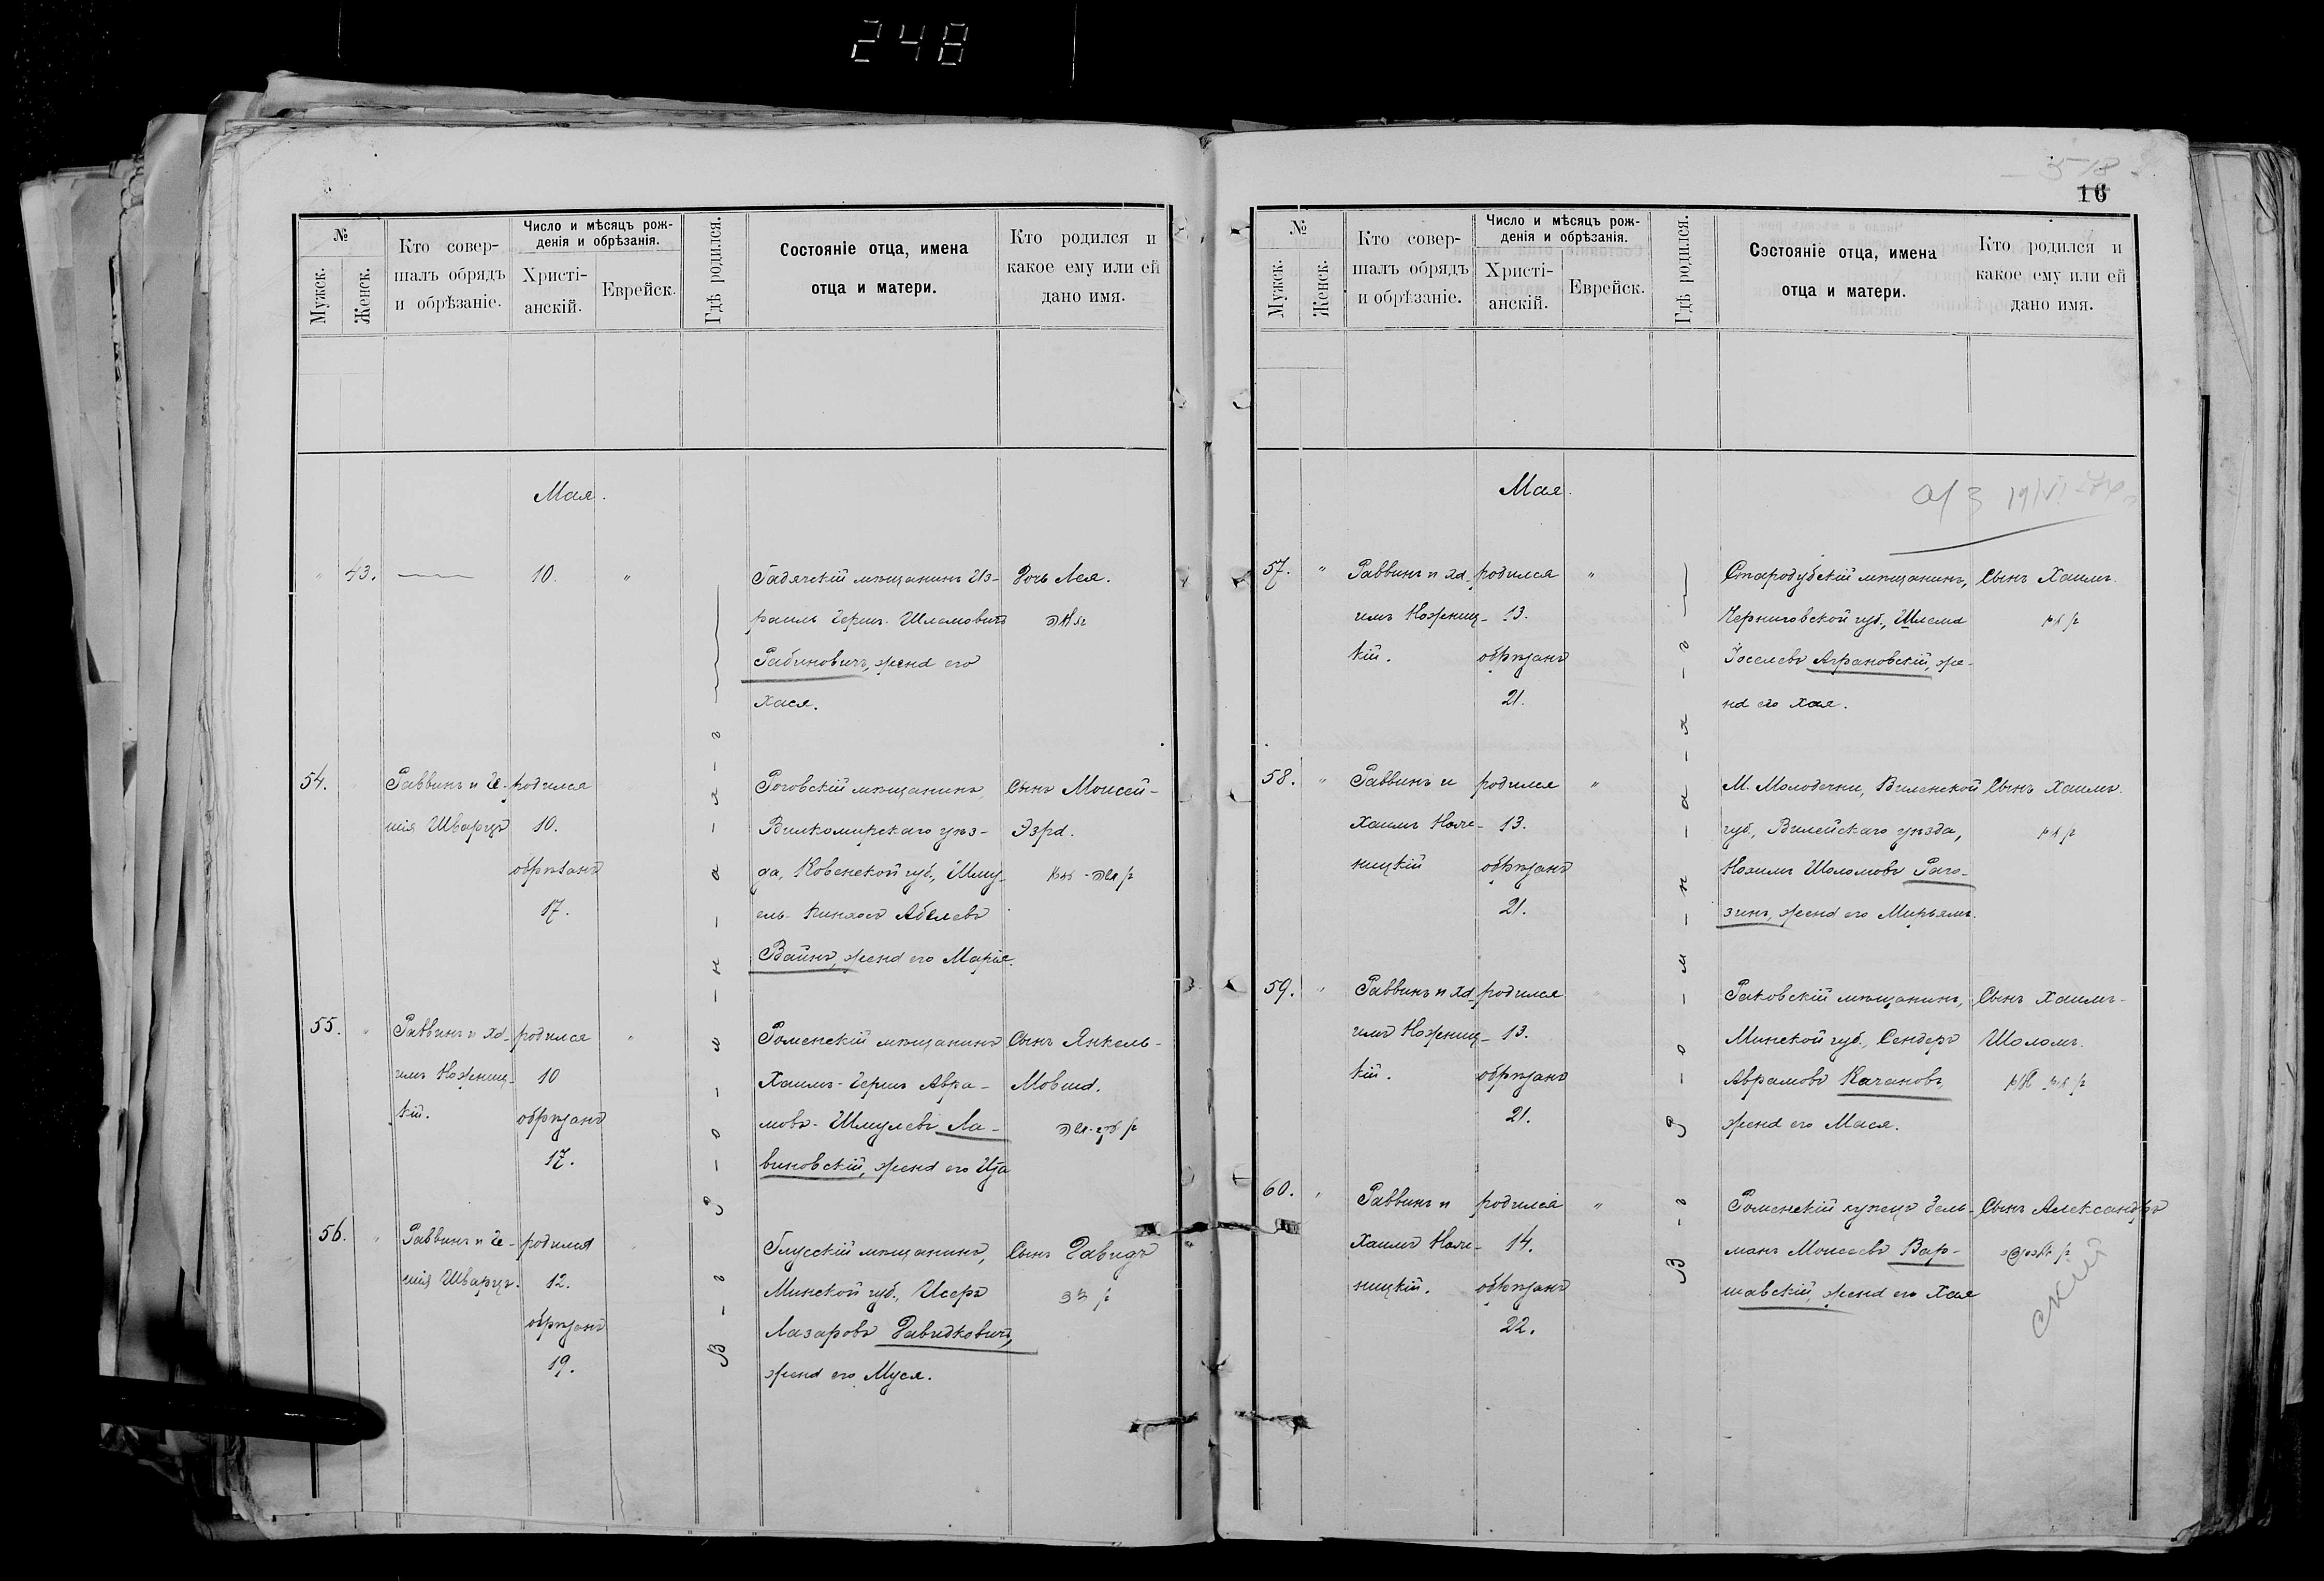 248
№
Мужск.
Женск.
Кто совер-
шалъ обрядъ
и обрѣзаніе.
Число и мѣсяцъ рож-
денія и обрѣзанія.
Христі-
анскій.
Еврейск.
Гдѣ родился.
Состояніе отца, имена
отца и матери.
Кто родился и
какое ему или ей
дано имя.
Мая.
" 43. — 10. "
Гадячскій мѣщанинъ Из-
раиль Гершъ Шлемовичъ
Рабиновичъ, жена его
Хася.
Дочь Лея.
54.
Раввинъ и Ге-
шія Шварцъ
родился
10.
обрѣзанъ
17.
Роговскій мѣщанинъ
Вилкомирскаго уѣз-
да, Ковенской губ., Шму-
ель Пинхосъ Абелевъ
Вайнъ, жена его Марія.
Сынъ Моисей-
Эзра.
55. "
Раввинъ и Ха-
имъ Ножниц-
кій.
родился
10
обрѣзанъ
17.
"
Роменскій мѣщанинъ
Хаимъ-Гершъ Авра-
мовъ-Шмулевъ Ла-
виновскій, жена его Ита
Сынъ Янкель-
Мовша.
56. "
Раввинъ и Ге-
шія Шварцъ.
родился
12.
обрѣзанъ
19.
Глусскій мѣщанинъ,
Минской губ., Исеръ
Лазаровъ Давидковичъ,
жена его Муся.
Сынъ Давидъ
דוד
В - г - о - р - о - м - н - а - х - ъ
16
№
Мужск.
Женск.
Кто совер-
шалъ обрядъ
и обрѣзаніе.
Число и мѣсяцъ рож-
денія и обрѣзанія.
Христі-
анскій.
Еврейск.
Гдѣ родился.
Состояніе отца, имена
отца и матери.
Кто родился и
какое ему или ей
дано имя.
Мая.
57. "
Раввинъ и Ха-
имъ Ножниц-
кій.
родился
13.
обрѣзанъ
21.
"
Стародубскій мѣщанинъ,
Черниговской губ., Шлема
Іоселевъ Аграновскій, же-
на его Хая.
Сынъ Хаимъ.
58. "
Раввинъ и
Хаимъ Нож-
ницкій
родился
13.
обрѣзанъ
21.
"
М. Молодечни, Виленской
губ., Вилейскаго уѣзда,
Нохимъ Шоломовъ Раго-
зинъ, жена его Мирьямъ.
Сынъ Хаимъ.
59. "
Раввинъ и Ха-
имъ Ножниц-
кій.
родился
13.
обрѣзанъ
21.
Раковскій мѣщанинъ,
Минской губ., Сендеръ
Аврамовъ Качановъ,
жена его Мася.
Сынъ Хаимъ-
Шоломъ.
60. "
Раввинъ и
Хаимъ Нож-
ницкій.
родился
14.
обрѣзанъ
22.
"
Роменскій купецъ Зель-
манъ Моисеевъ Вар-
шавскій, жена его Хая
Сынъ Александръ
ский